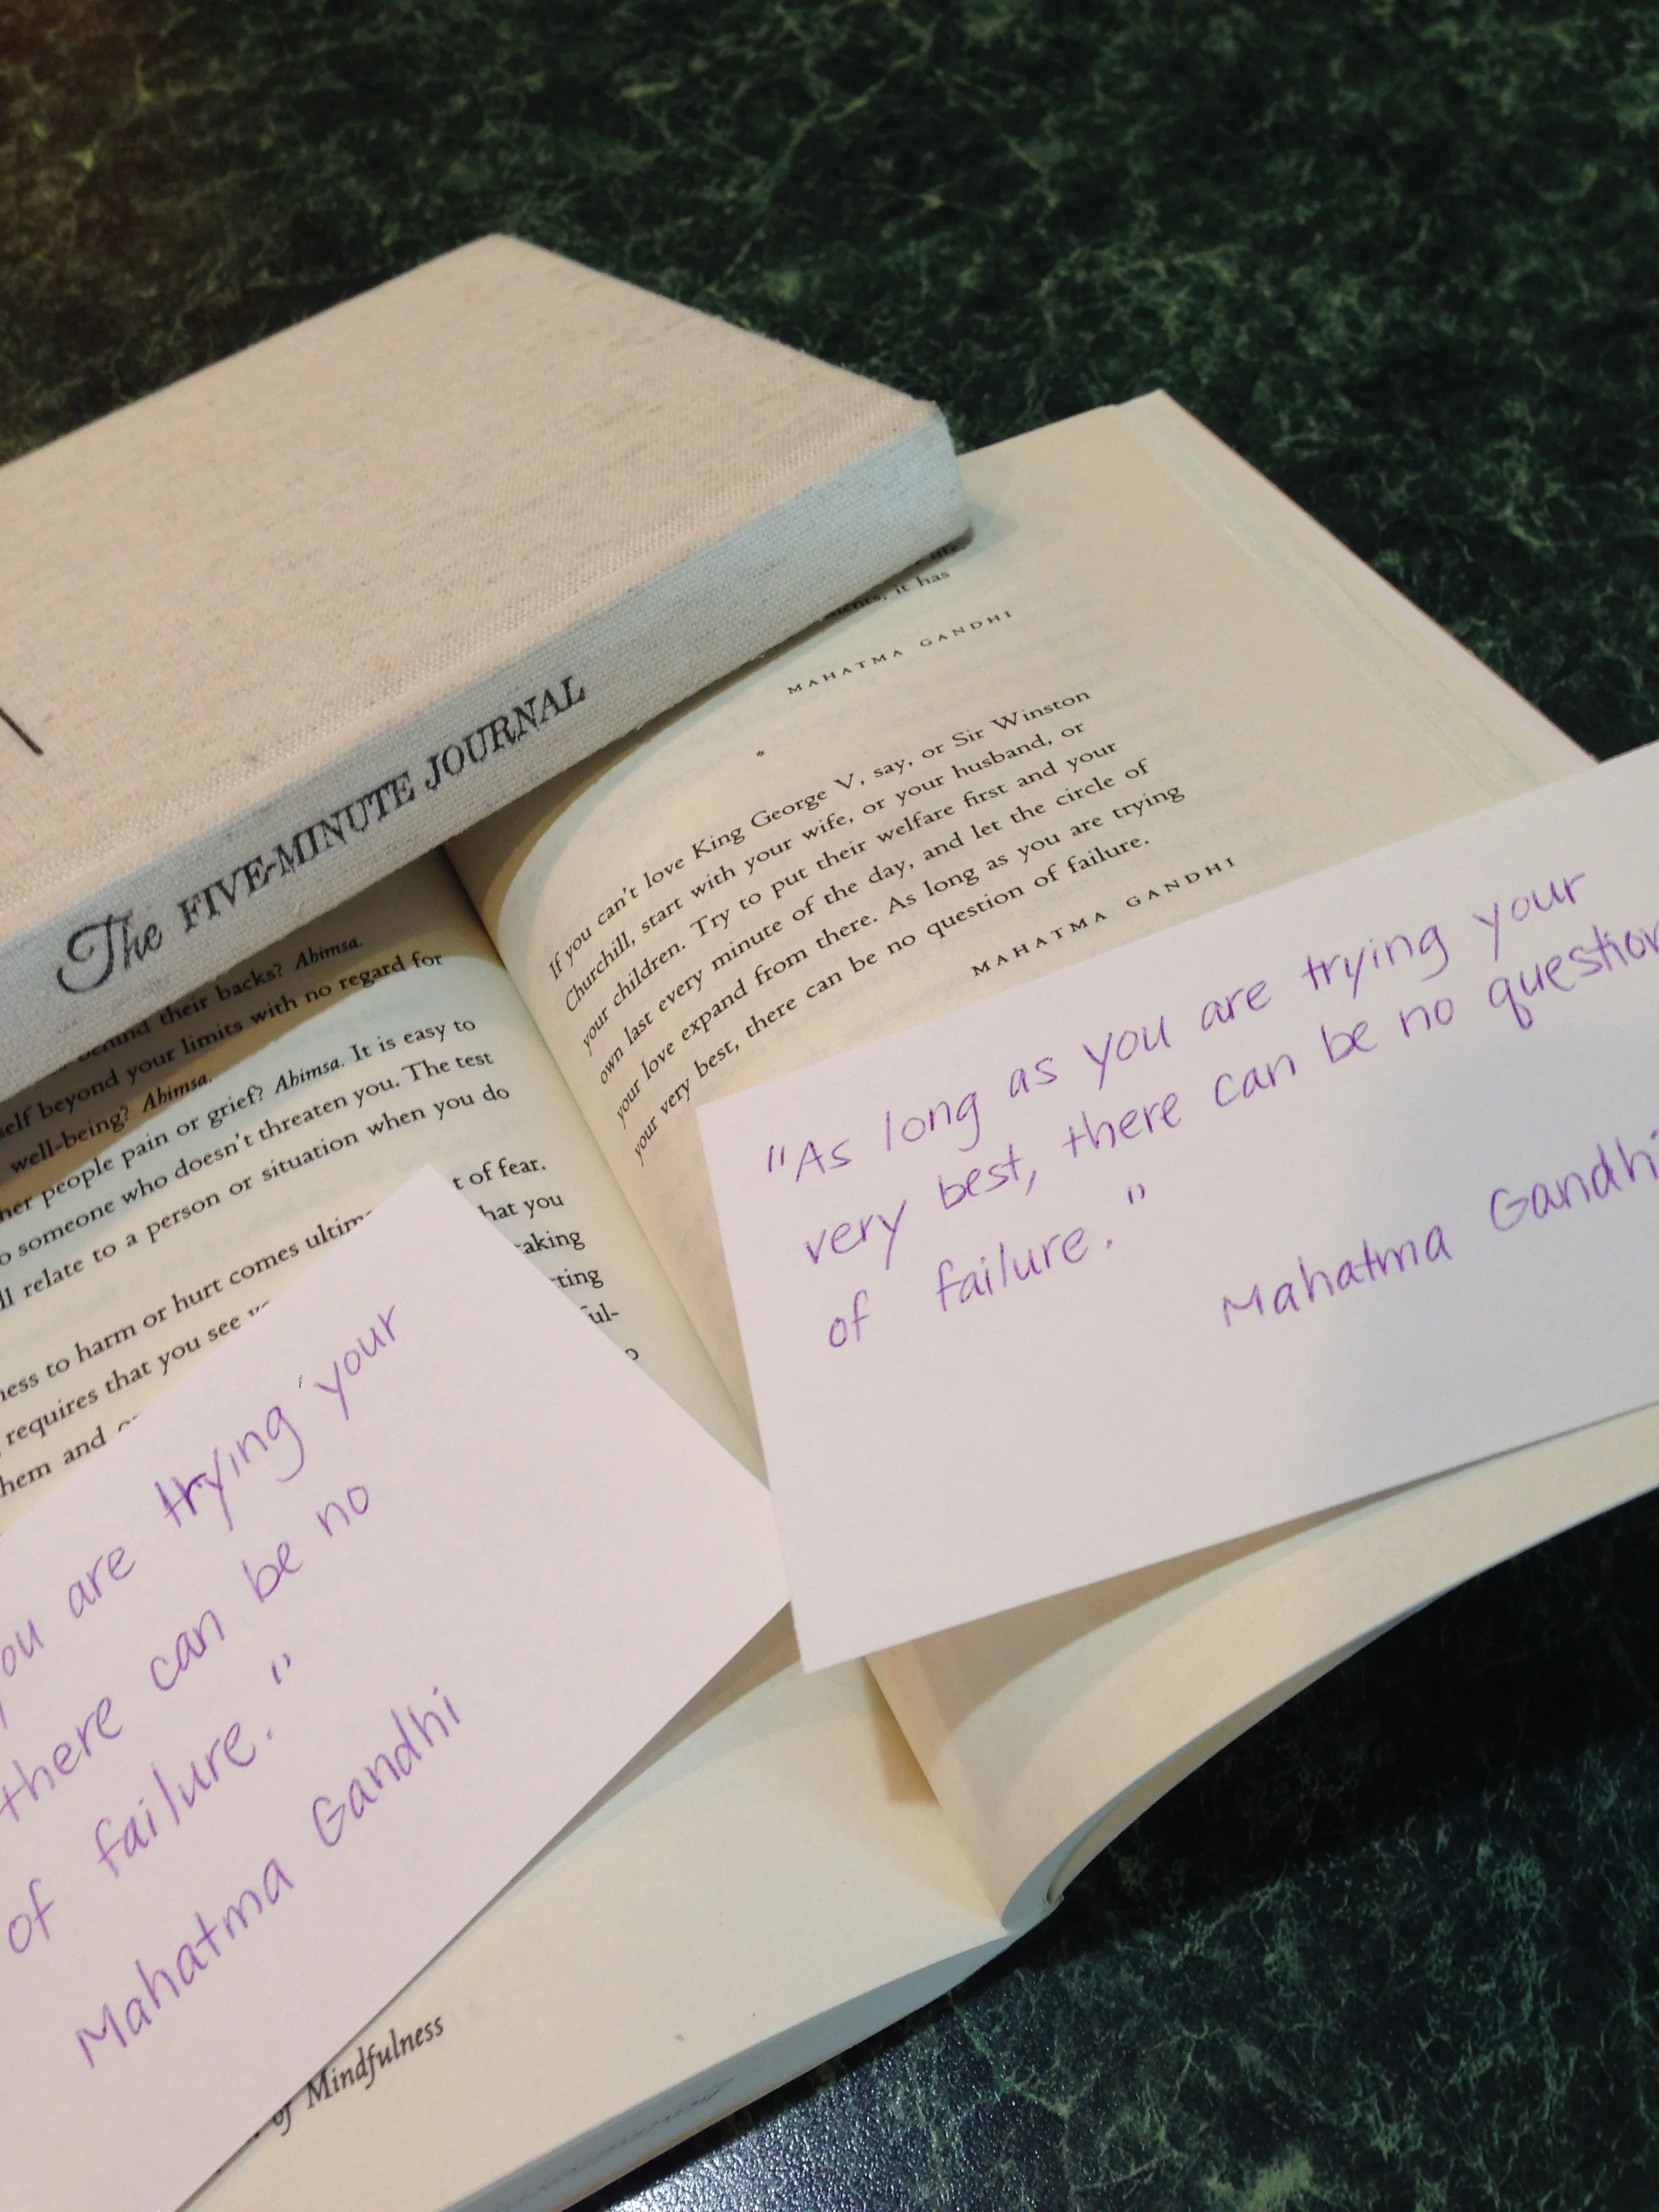 The FIVE-MINUTE JOURNAL
it has
MAHATMA GANDHI
*
If you can't love King George V, say, or Sir Winston
Churchill, start with your wife, or your husband, or
your children. Try to put their welfare first and your
own last every minute of the day, and let the circle of
your love expand from there. As long as you are trying
your very best, there can be no question of failure.
MAHATMA GANDHI
behind their backs? Ahimsa.
self beyond your limits with no regard for
well-being? Ahimsa.
her people pain or grief? Ahimsa. It is easy to
o someone who doesn't threaten you. The test
ll relate to a person or situation when you do
t of fear.
ness to harm or hurt comes ultim
hat you
requires that you see
taking
hem and
ting
ful-
"As long as you are trying your
very best, there can be no question
of failure."
Mahatma Gandhi
you are trying your
there can be no
of failure."
Mahatma Gandhi
of Mindfulness